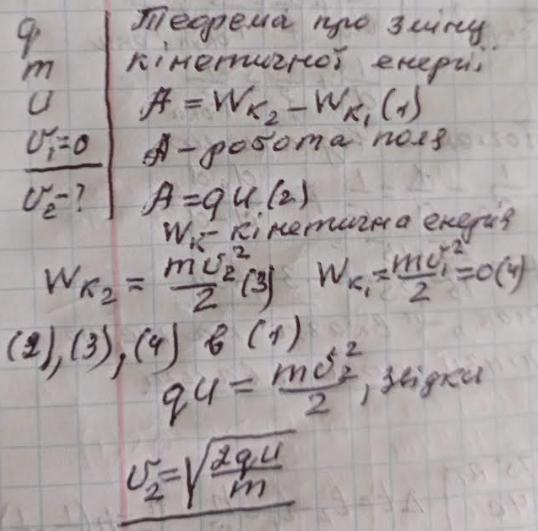 q
m
U
υ₁=0
υ₂-?
Теорема про зміну
кінетичної енергії
A = W_{K₂} - W_{K₁} (1)
A - робота поля
A = qU (2)
W_K - кінетична енергія
W_{K₂} = mυ₂²/2 (3) W_{K₁} = mυ₁²/2 = 0 (4)
(2), (3), (4) в (1)
qU = mυ₂²/2, звідки
υ₂ = √(2qU/m)